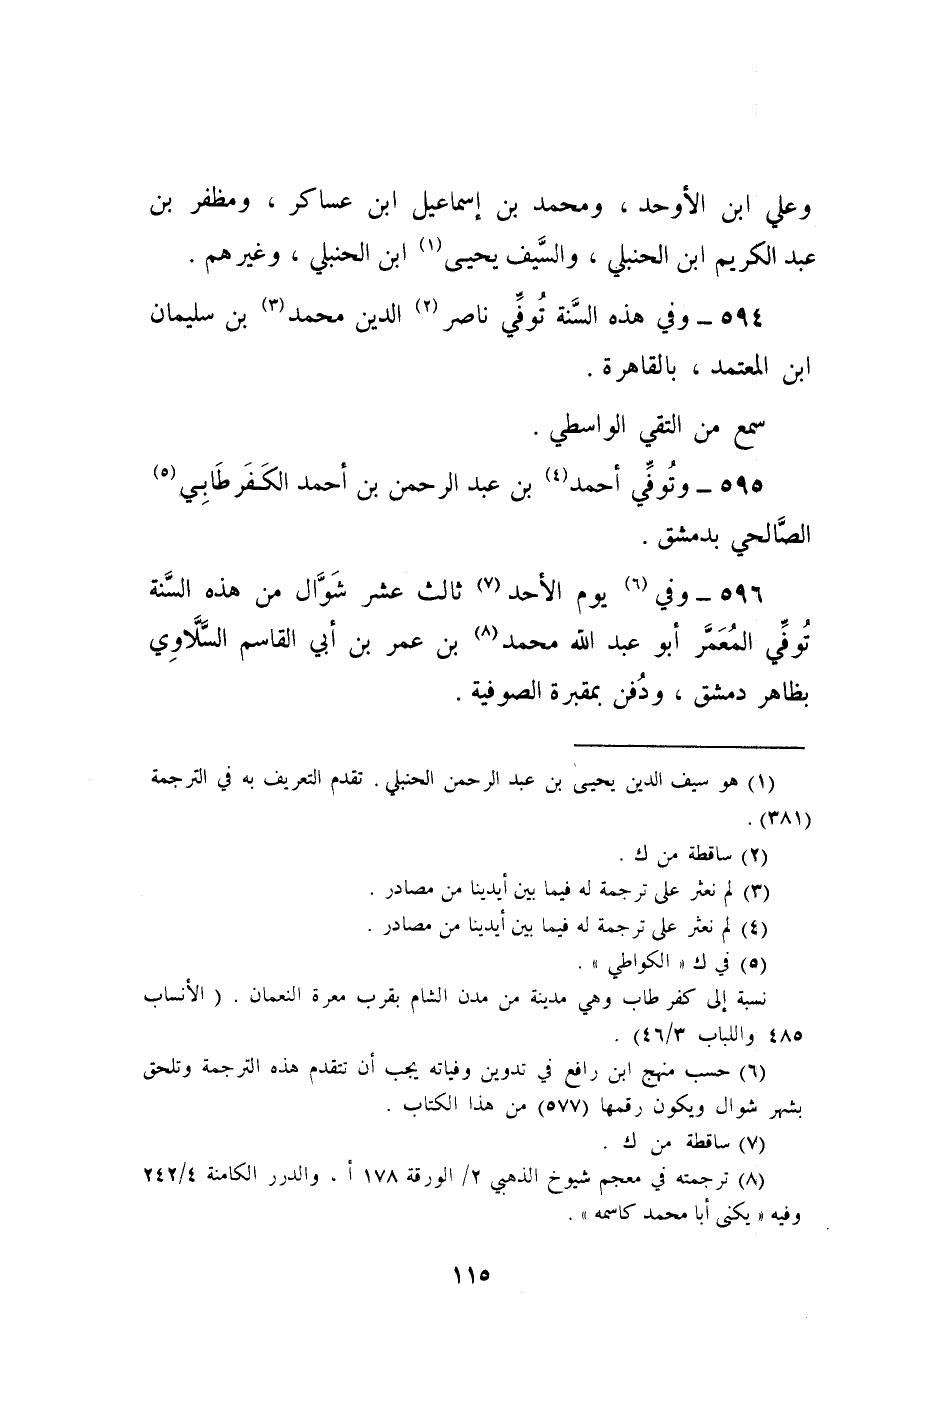 وعلي ابن الأوحد ، ومحمد بن إسماعيل ابن عساكر ، ومظفر بن
عبد الكريم ابن الحنبلي ، والسَّيف يحيى(١) ابن الحنبلي ، وغيرهم .
٥٩٤ ــ وفي هذه السَّنة تُوفِّي ناصر(٢) الدين محمد(٣) بن سليمان
ابن المعتمد ، بالقاهرة .
سمع من التقي الواسطي .
٥٩٥ ــ وتُوفِّي أحمد(٤) بن عبد الرحمن بن أحمد الكَفَرطَابِي(٥)
الصَّالحي بدمشق .
٥٩٦ ــ وفي(٦) يوم الأحد(٧) ثالث عشر شَوَّال من هذه السَّنة
تُوفِّي المُعَمَّر أبو عبد الله محمد(٨) بن عمر بن أبي القاسم السَّلَّاوِي
بظاهر دمشق ، ودُفن بمقبرة الصوفية .
(١) هو سيف الدين يحيى بن عبد الرحمن الحنبلي . تقدم التعريف به في الترجمة
(٣٨١) .
(٢) ساقطة من ك .
(٣) لم نعثر على ترجمة له فيما بين أيدينا من مصادر .
(٤) لم نعثر على ترجمة له فيما بين أيدينا من مصادر .
(٥) في ك « الكواطي » .
نسبة إلى كفر طاب وهي مدينة من مدن الشام بقرب معرة النعمان . ( الأنساب
٤٨٥ واللباب ٤٦/٣) .
(٦) حسب منهج ابن رافع في تدوين وفياته يجب أن تتقدم هذه الترجمة وتلحق
بشهر شوال ويكون رقمها (٥٧٧) من هذا الكتاب .
(٧) ساقطة من ك .
(٨) ترجمته في معجم شيوخ الذهبي ٢/ الورقة ١٧٨ أ . والدرر الكامنة ٢٤٢/٤
وفيه « يكنى أبا محمد كاسمه » .
١١٥